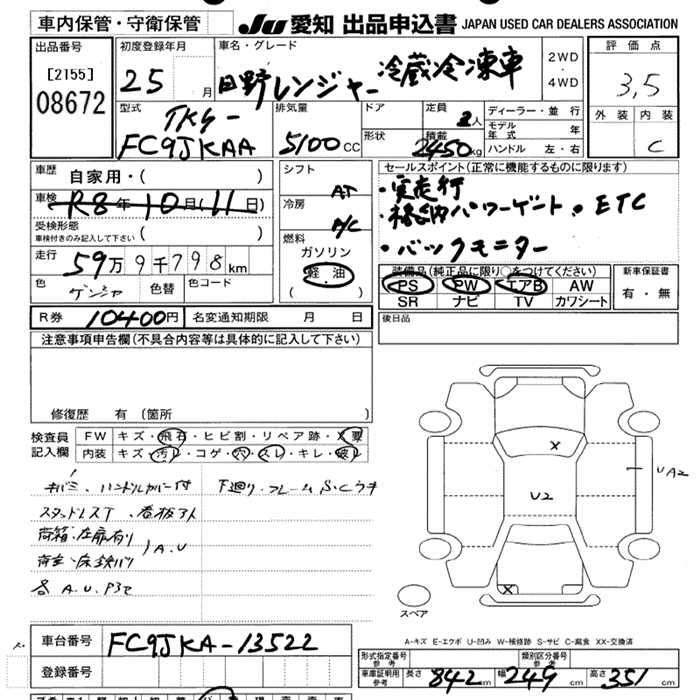 車内保管・守衛保管
JU 愛知 出品申込書 JAPAN USED CAR DEALERS ASSOCIATION
出品番号
[2155]
08672
初度登録年月
25 月
車名・グレード
日野レンジャー 冷蔵冷凍車
2WD
・
4WD
評価点
3,5
外装 内装
C
型式
TKG-
FC9JKAA
排気量
5100 CC
ドア
形状
定員 2人
積載
2450 kg
ディーラー・並行
モデル年式 年
ハンドル 左・右
車歴 自家用・( )
車検 R8年10月(11日)
受検形態
車検付きのみ記入して下さい ( )
走行 59万9千798km
色 ゲンシャ 色替 色コード
シフト
AT
冷房
A/C
燃料
ガソリン
軽油
( )
セールスポイント(正常に機能するものに限ります)
・実走行
・格納パワーゲート ・ETC
・バックモニター
装備品(純正品に限り○をつけてください)
PS PW エアB AW
SR ナビ TV カワシート
新車保証書
有・無
R券 10400円 名変通知期限 月 日
後日品
注意事項申告欄(不具合内容等は具体的に記入して下さい)
修復歴 有 (箇所 )
検査員
記入欄
FW キズ・飛石・ヒビ割・リペア跡・X
内装 キズ・汚レ・コゲ・穴・スレ・キレ・破レ
キバミ、ハンドルカバー付
下廻り・フレームS.Cウキ
スタッドレスT、看板アト
荷箱・左扉有り
荷室・床鉄バリ
) A.U
各A.U.P3て
X
U2
UA2
X
スペア
A-キズ E-エクボ U-凹み W-補修跡 S-サビ C-腐食 XX-交換済
車台番号 FC9JKA-13522
登録番号
形式指定番号
参考
類別区分番号
参考
車庫証明用
参考
長さ 842cm 幅 249cm 高さ 351cm